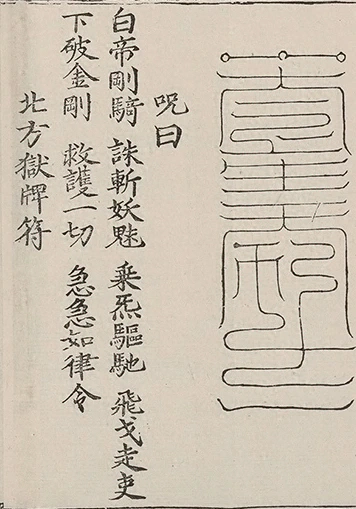 呪曰
白帝剛騎 誅斬妖魅 乗炁驅馳 飛戈走吏
下破金剛 救護一切 急急如律令
北方獄牌符